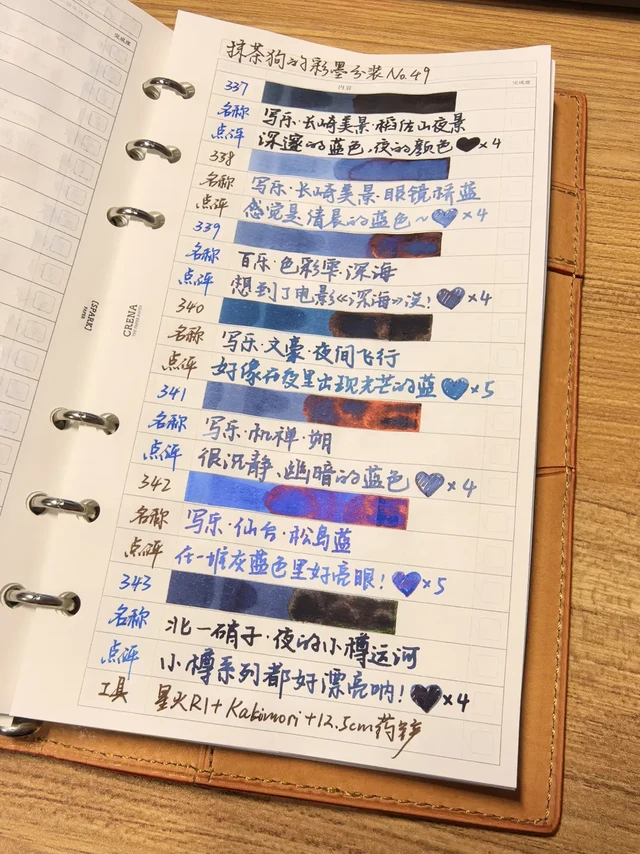 抹茶狗的彩墨分装No.49
内容
完成度
337
名称 写乐·长崎美景·稻佐山夜景
点评 深邃的蓝色,夜的颜色♥×4
338
名称 写乐·长崎美景·眼镜桥蓝
点评 感觉是清晨的蓝色~♥×4
339
名称 百乐·色彩雫·深海
点评 想到了电影《深海》淡!♥×4
340
名称 写乐·文豪·夜间飞行
点评 好像在夜里出现光芒的蓝♥×5
341
名称 写乐·机禅·朔
点评 很沉静、幽暗的蓝色♥×4
342
名称 写乐·仙台·松岛蓝
点评 在一堆灰蓝色里好亮眼!♥×5
343
名称 北一硝子·夜的小樽运河
点评 小樽系列都好漂亮呐!♥×4
工具 星火R1+Kakimori+12.5cm药铲
[SPARK]
CRENA